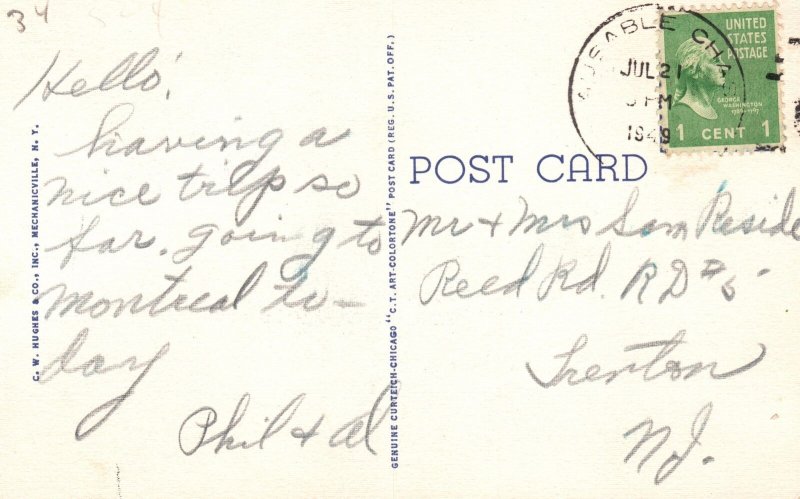 34
Hello!
having a
nice trip so
far. going to
Montreal to-
day
Phil & Al
C. W. HUGHES & CO., INC., MECHANICVILLE, N. Y.
GENUINE CURTEICH-CHICAGO "C.T. ART-COLORTONE" POST CARD (REG. U.S. PAT. OFF.)
AUSABLE CHAS
JUL 21
PM
1949
UNITED
STATES
POSTAGE
GEORGE
WASHINGTON
1789-1797
1 CENT 1
POST CARD
Mr & Mrs Sam Reside
Reed Rd. RD #5
Trenton
N.J.